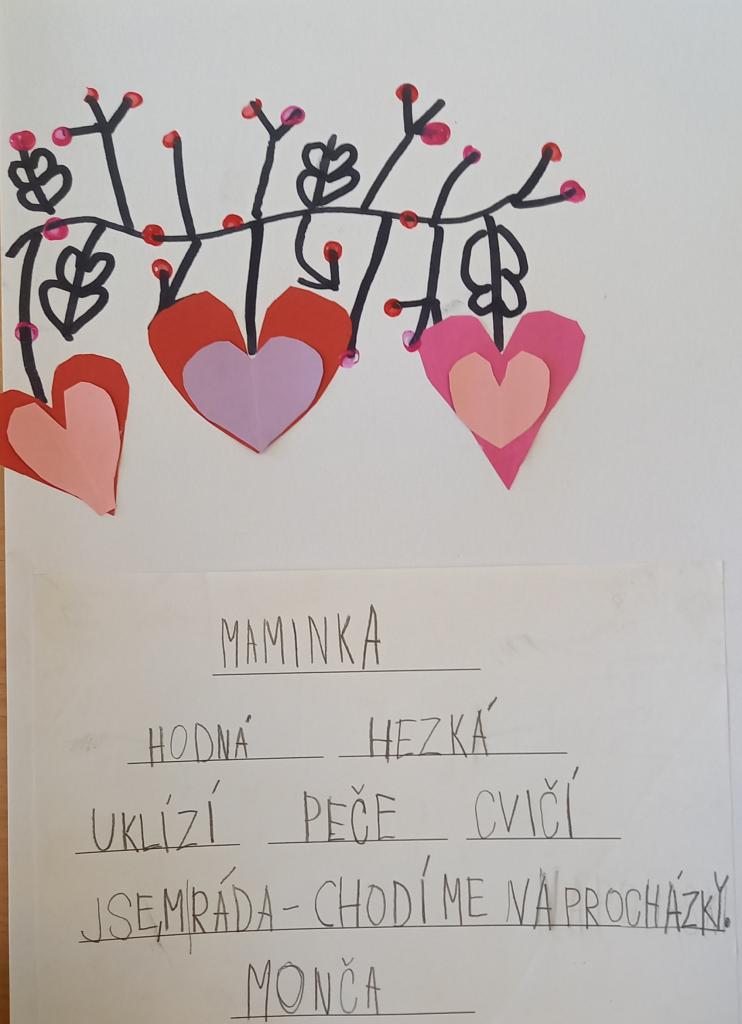 MAMINKA
HODNÁ HEZKÁ
UKLÍZÍ PEČE CVIČÍ
JSEM RÁDA - CHODÍME NA PROCHÁZKY.
MONČA